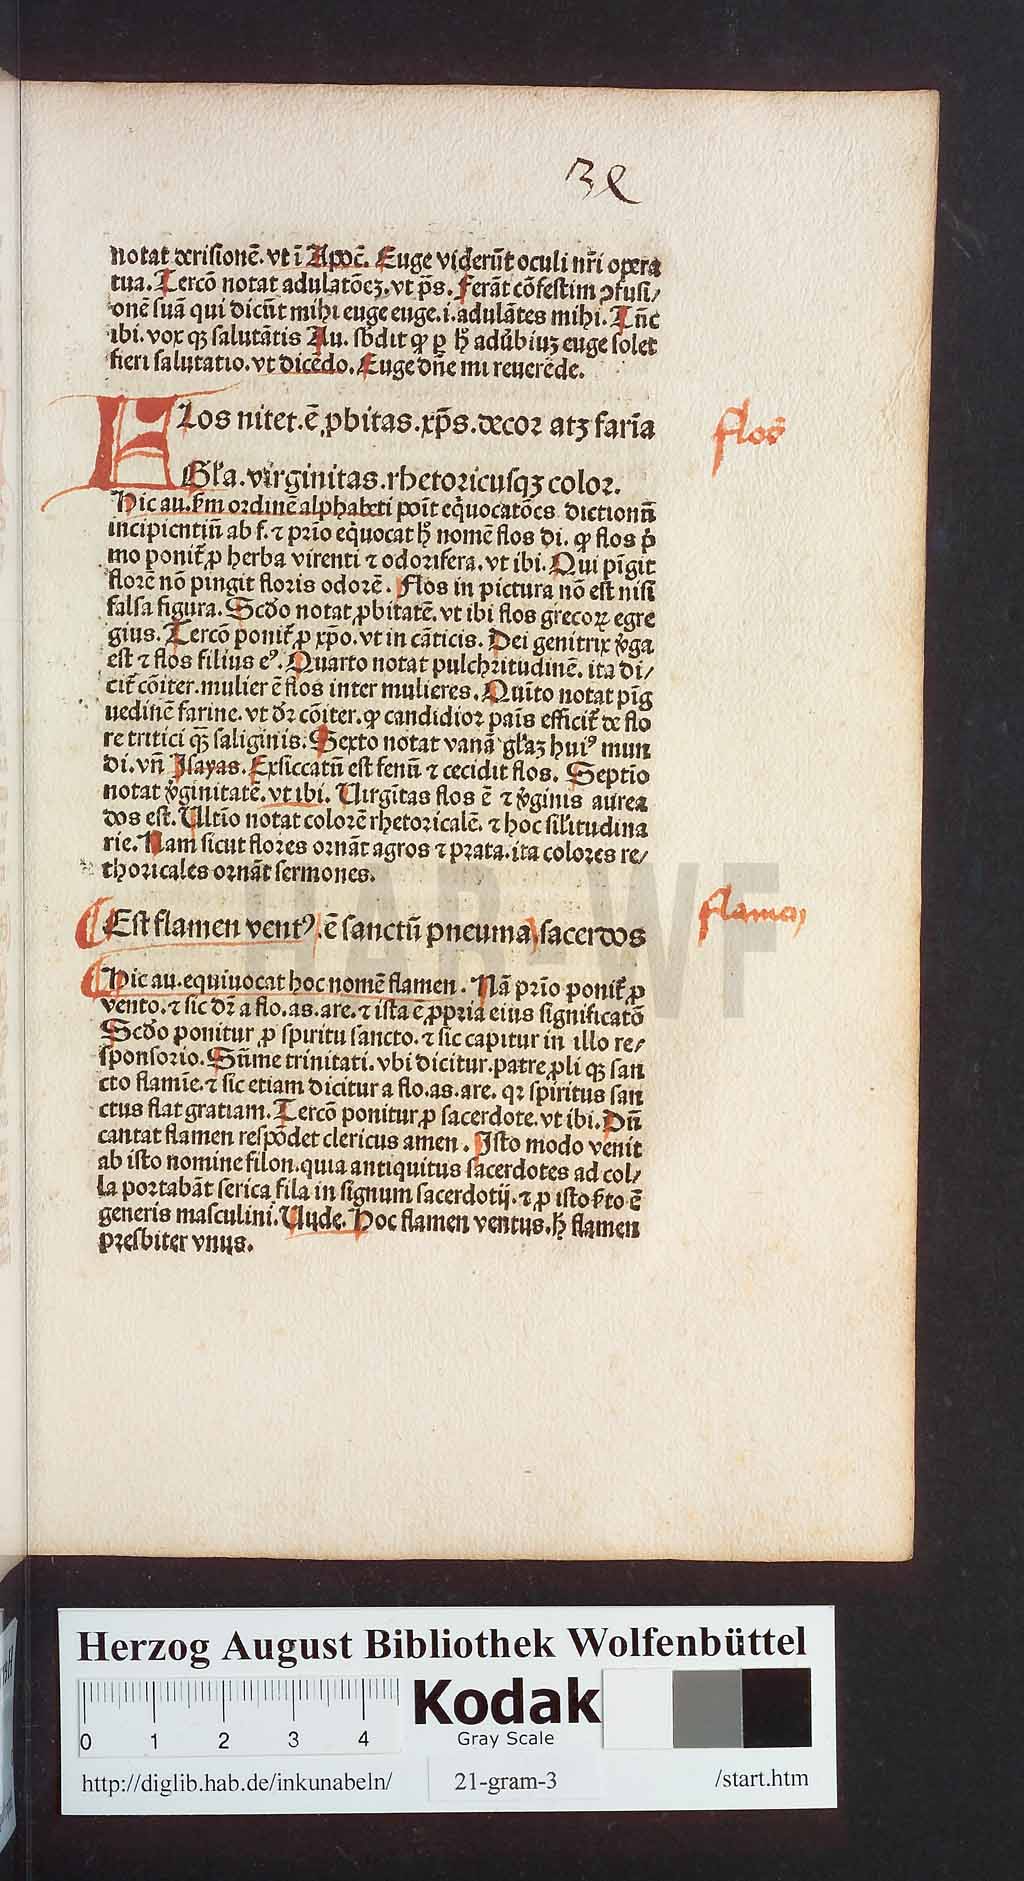 notat derisionē. vt ī Apoc̄. Euge viderūt oculi nr̄i opera
tua. Tercō notat adulatōeꝫ. vt ps̄. Ferāt cōfestim ꝯfusi/
onē suā qui dicūt mihi euge euge. i. adulātes mihi. Tūc
ibi. vox qꝫ salutātis Au. sb̄dit ꝙ ꝑ h̄ adūbiuꝫ euge solet
fieri salutatio. vt dicēdo. Euge dn̄e mi reuerēde.
flos
FLos nitet. ē ꝓbitas. xp̄s. decor atꝫ farīa
Gl̄a. virginitas. rhetoricusqꝫ color.
Hic au. km̄ ordinē alphabeti poīt eq̇uocatōes dictionū
incipientiū ab f. ⁊ prīo eq̇uocat h̄ nomē flos di. ꝙ flos ṗ
mo ponit̄ ꝓ herba virenti ⁊ odorifera. vt ibi. Qui pīgit
florē nō pingit floris odorē. Flos in pictura nō est nisi
falsa figura. Scd̄o notat ꝓbitatē. vt ibi flos grecoꝝ egre
gius. Tercō ponit̄ ꝓ xp̄o. vt in cāticis. Dei genitrix v̇ga
est ⁊ flos filius eꝰ. Quarto notat pulchritudinē. ita di/
cit̄ cōiter. mulier ē flos inter mulieres. Quīto notat pīg
uedinē farine. vt dr̄ cōiter. ꝙ candidior paīs efficit̄ de flo
re tritici qꝫ̄ saliginis. Sexto notat vanā gl̄aꝫ huiꝰ mun
di. vn̄ Isayas. Exsiccatū est fenū ⁊ cecidit flos. Septīo
notat v̇ginitatē. vt ibi. Uirgītas flos ē ⁊ v̇ginis aurea
dos est. Ultīo notat colorē rhetoricalē. ⁊ hoc sil̄itudina
rie. Nam sicut flores ornāt agros ⁊ prata. ita colores re/
thoricales ornāt sermones.
flamen
Est flamen ventꝰ. ē sanctū pneuma sacerdos
Hic au. equiuocat hoc nomē flamen. Nā prīo ponit̄ ꝓ
vento. ⁊ sic dr̄ a flo. as. are. ⁊ ista ē ꝓpria eius significatō
Scd̄o ponitur ꝓ spiritu sancto. ⁊ sic capitur in illo re/
sponsorio. Sūme trinitati. vbi dicitur. patre ꝓli qꝫ san
cto flamīe. ⁊ sic etiam dicitur a flo. as. are. qꝛ spiritus san
ctus flat gratiam. Tercō ponitur ꝓ sacerdote. vt ibi. Dū
cantat flamen respōdet clericus amen. Isto modo venit
ab isto nomine filon. quia antiquitus sacerdotes ad col/
la portabāt serica fila in signum sacerdotij. ⁊ ꝓ isto k̄to ē
generis masculini. Unde. Hoc flamen ventus. h̄ flamen
presbiter vnus.
HAB-WF
Herzog August Bibliothek Wolfenbüttel
0 1 2 3 4
Kodak
Gray Scale
http://diglib.hab.de/inkunabeln/
21-gram-3
/start.htm